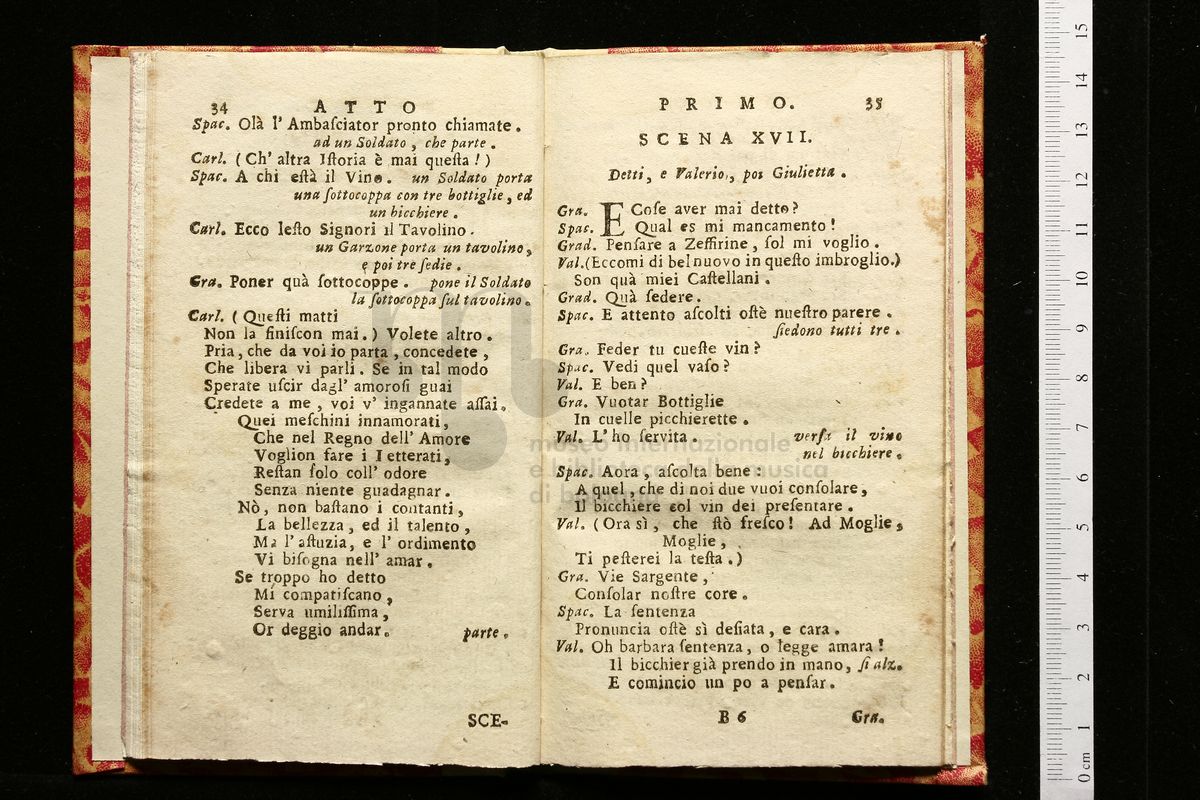 34 ATTO
Spac. Olà l' Ambaſciator pronto chiamate.
ad un Soldato, che parte.
Carl. (Ch' altra Iſtoria è mai queſta!)
Spac. A chi eſtà il Vino. un Soldato porta
una ſottocoppa con tre bottiglie, ed
un bicchiere.
Carl. Ecco leſto Signori il Tavolino.
un Garzone porta un tavolino,
e poi tre ſedie.
Gra. Poner quà ſottocoppe. pone il Soldato
la ſottocoppa ſul tavolino.
Carl. (Queſti matti
Non la finiſcon mai.) Volete altro.
Pria, che da voi io parta, concedete,
Che libera vi parli. Se in tal modo
Sperate uſcir dagl' amoroſi guai
Credete a me, voi v' ingannate aſſai.
Quei meſchini innamorati,
Che nel Regno dell' Amore
Voglion fare i Letterati,
Reſtan ſolo coll' odore
Senza niente guadagnar.
Nò, non baſtano i contanti,
La bellezza, ed il talento,
Ma l' aſtuzia, e l' ordimento
Vi biſogna nell' amar.
Se troppo ho detto
Mi compatiſcano,
Serva umiliſſima,
Or deggio andar. parte.
SCE-
PRIMO. 35
SCENA XVII.
Detti, e Valerio, poi Giulietta.
Gra. E Coſe aver mai detto?
Spac. Qual es mi mancamento!
Grad. Penſare a Zeffirine, ſol mi voglio.
Val. (Eccomi di bel nuovo in queſto imbroglio.)
Son quà miei Caſtellani.
Grad. Quà ſedere.
Spac. E attento aſcolti oſtè nueſtro parere.
ſiedono tutti tre.
Gra. Feder tu cueſte vin?
Spac. Vedi quel vaſo?
Val. E ben?
Gra. Vuotar Bottiglie
In cuelle picchierette.
Val. L' ho ſervita. verſa il vino
nel bicchiere.
Spac. Aora, aſcolta bene:
A quel, che di noi due vuoi conſolare,
Il bicchiere col vin dei preſentare.
Val. (Ora sì, che ſtò freſco! Ad Moglie,
Moglie,
Ti peſterei la teſta.)
Gra. Vie Sargente,
Conſolar noſtre core.
Spac. La ſentenza
Pronuncia oſtè sì deſiata, e cara.
Val. Oh barbara ſentenza, o legge amara!
Il bicchier già prendo in mano, ſi alz.
E comincio un po a penſar.
B 6 Gra.
museo internazionale
e biblioteca della musica
di bologna
0 cm 1 2 3 4 5 6 7 8 9 10 11 12 13 14 15